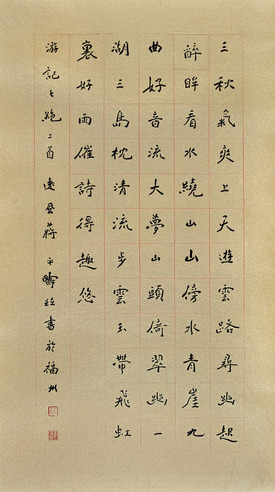 三秋氣爽上天遊雲路尋幽起
醉眸看水繞山山傍水青崖九
曲好音流大夢山頭倚翠幽一
湖三島枕清流步雲玉帶飛虹
裏好雨催詩得趣悠
游記七絕二首蔣平疇書於福州